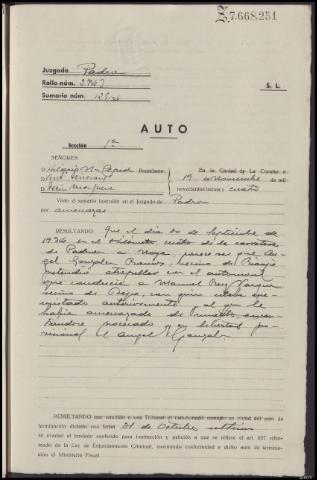 Z.7.668.251
Juzgado Padron
Rollo núm.
Sumario núm.
S. L.
AUTO
Sección 1ª
SEÑORES:
D. Presidente
D.
D.
En la Ciudad de La Coruña a
19 noviembre de mil
novecientos treinta y cuatro
Visto el sumario instruido en el Juzgado de Padron
por amenazas
RESULTANDO: Que el día de Septiembre de
1934 en el kilómetro cuatro de la carretera
de Padron a Noya, parece ser que An-
gel Gonzalez Ramos, vecino de
pretendió atropellar con el automovil
que conducía a Manuel Rey
vecino de con quien estaba ene-
mistado anteriormente y al que le
había amenazado de muerte, encon-
trandose procesado y en libertad pro-
visional el Angel Gonzalez
RESULTANDO que remitido a este Tribunal el mencionado sumario en virtud del auto de
terminación dictado con fecha 31 de Octubre último
se evacuó el traslado conferido para instrucción y petición a que se refiere el art. 627 refor-
mado de la Ley de Enjuiciamiento Criminal, mostrando conformidad a dicho auto de termina-
ción el Ministerio Fiscal